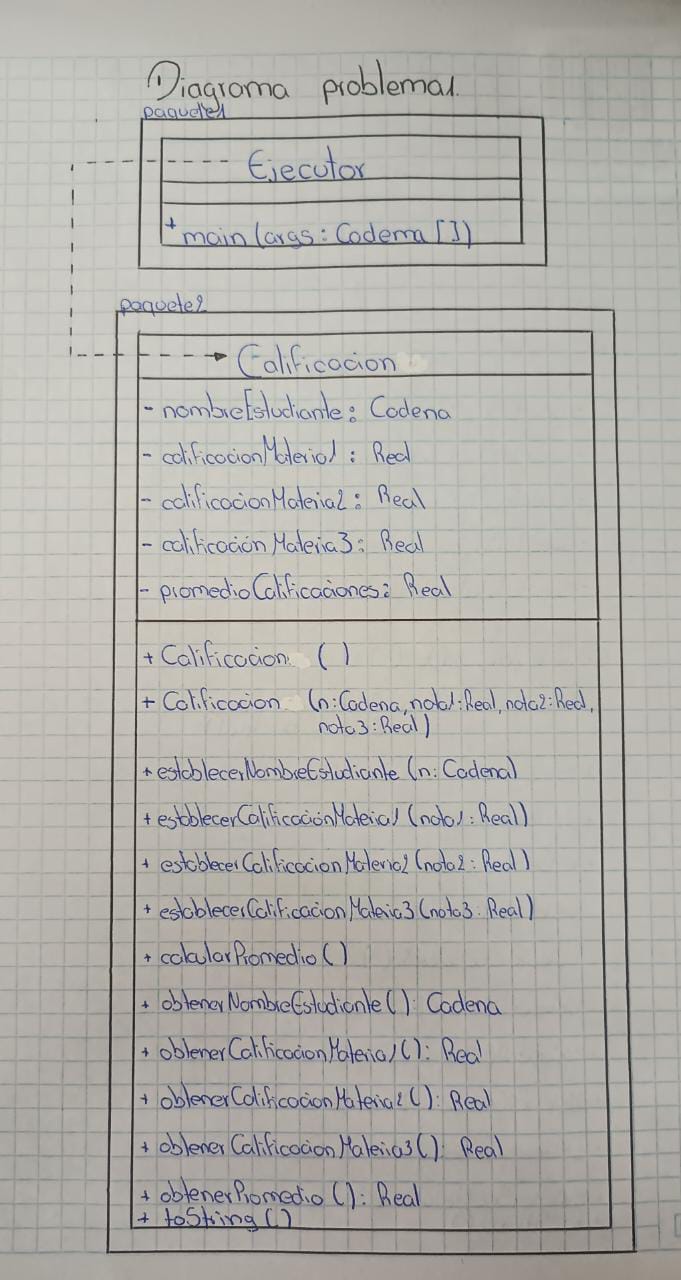 Diagrama problema1.
paquete1
Ejecutor
+ main (args: Cadena [])
paquete2
Calificacion
- nombreEstudiante: Cadena
- calificacionMateria1: Real
- calificacionMateria2: Real
- calificaciónMateria3: Real
- promedioCalificaciones: Real
+ Calificacion ()
+ Calificacion (n:Cadena, nota1:Real, nota2:Real,
nota3:Real)
+ establecerNombreEstudiante (n: Cadena)
+ establecerCalificaciónMateria1 (nota1: Real)
+ establecerCalificacionMateria2 (nota2: Real)
+ establecerCalificacionMateria3 (nota3: Real)
+ calcularPromedio ()
+ obtenerNombreEstudiante (): Cadena
+ obtenerCalificacionMateria1 (): Real
+ obtenerCalificacionMateria2 (): Real
+ obtenerCalificacionMateria3 (): Real
+ obtenerPromedio (): Real
+ toString ()